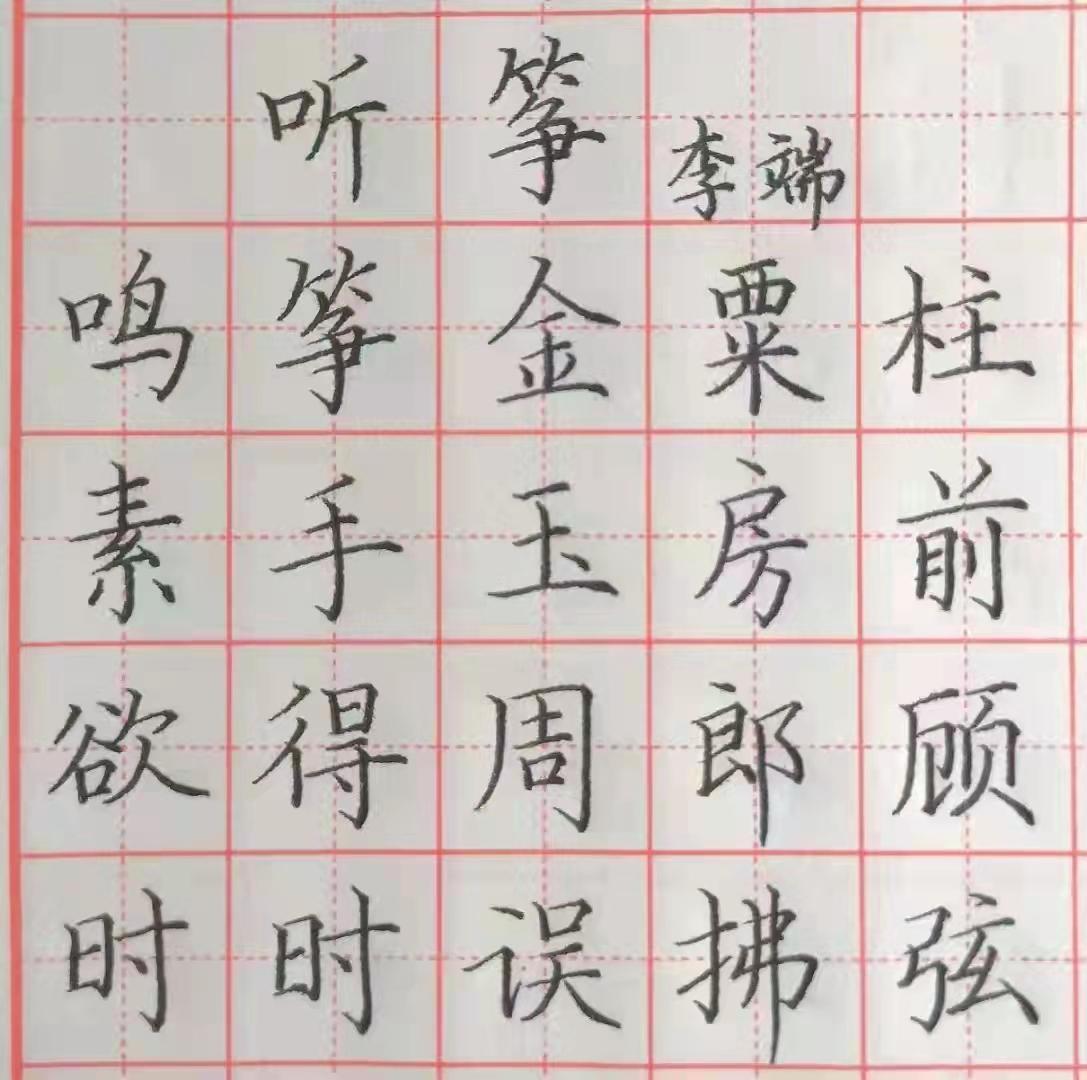 听筝 李端
鸣筝金粟柱
素手玉房前
欲得周郎顾
时时误拂弦